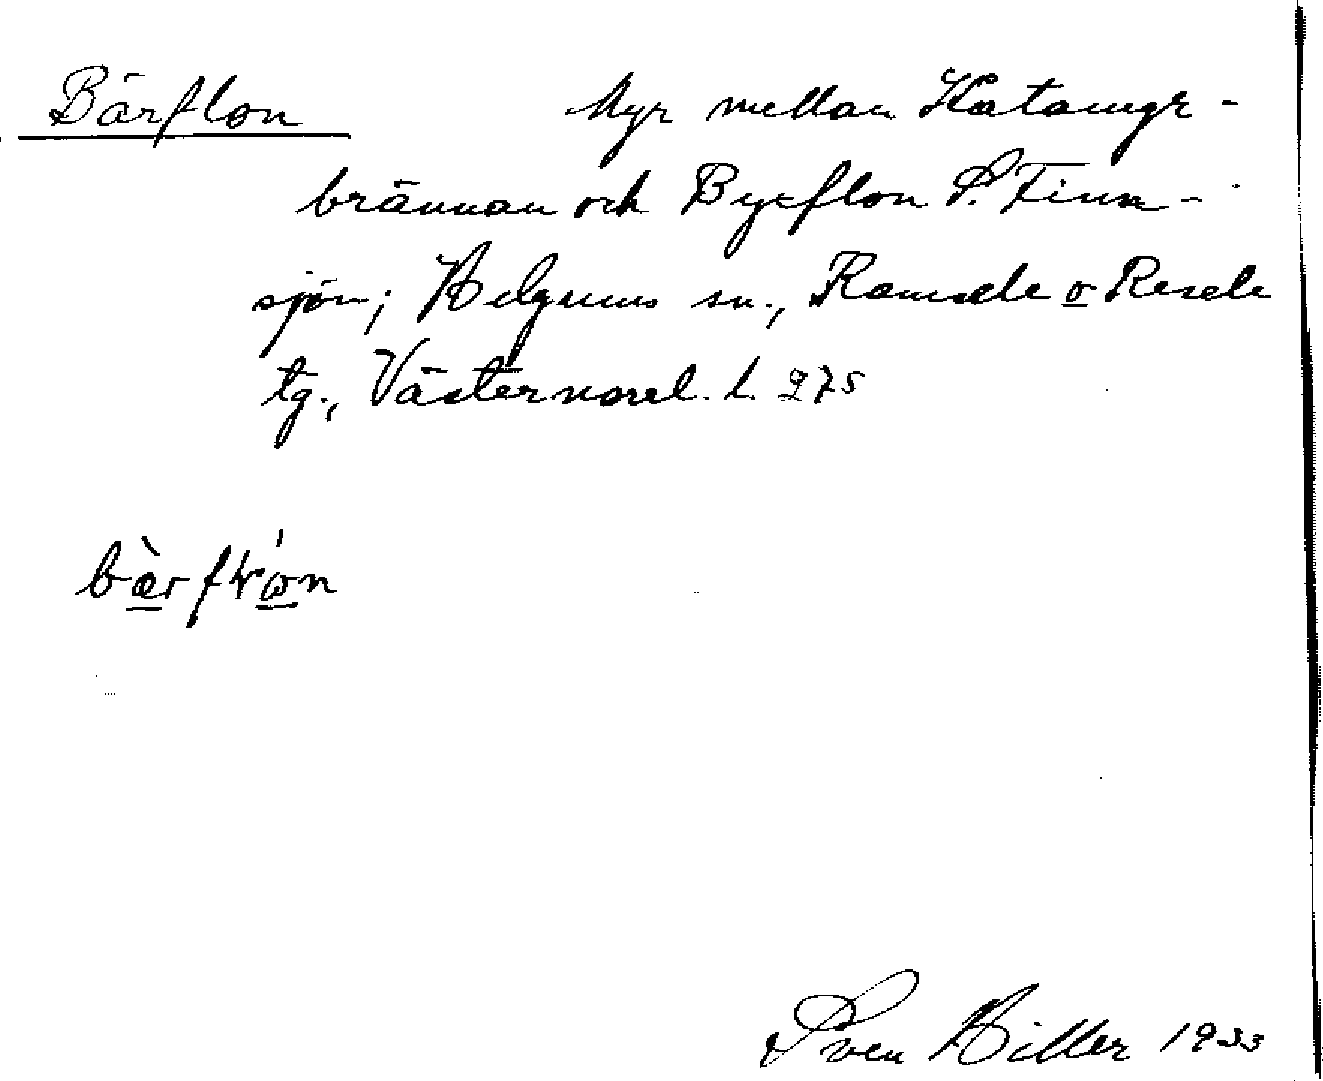 Bärflon Myr mellan Katamyr-
brännan och Byeflon S. Finn-
sjön; Helgums sn., Ramsele o Resele
tg., Västernorrl. l. 275
bæ̀rfɽòn
Sven Hiller 1933